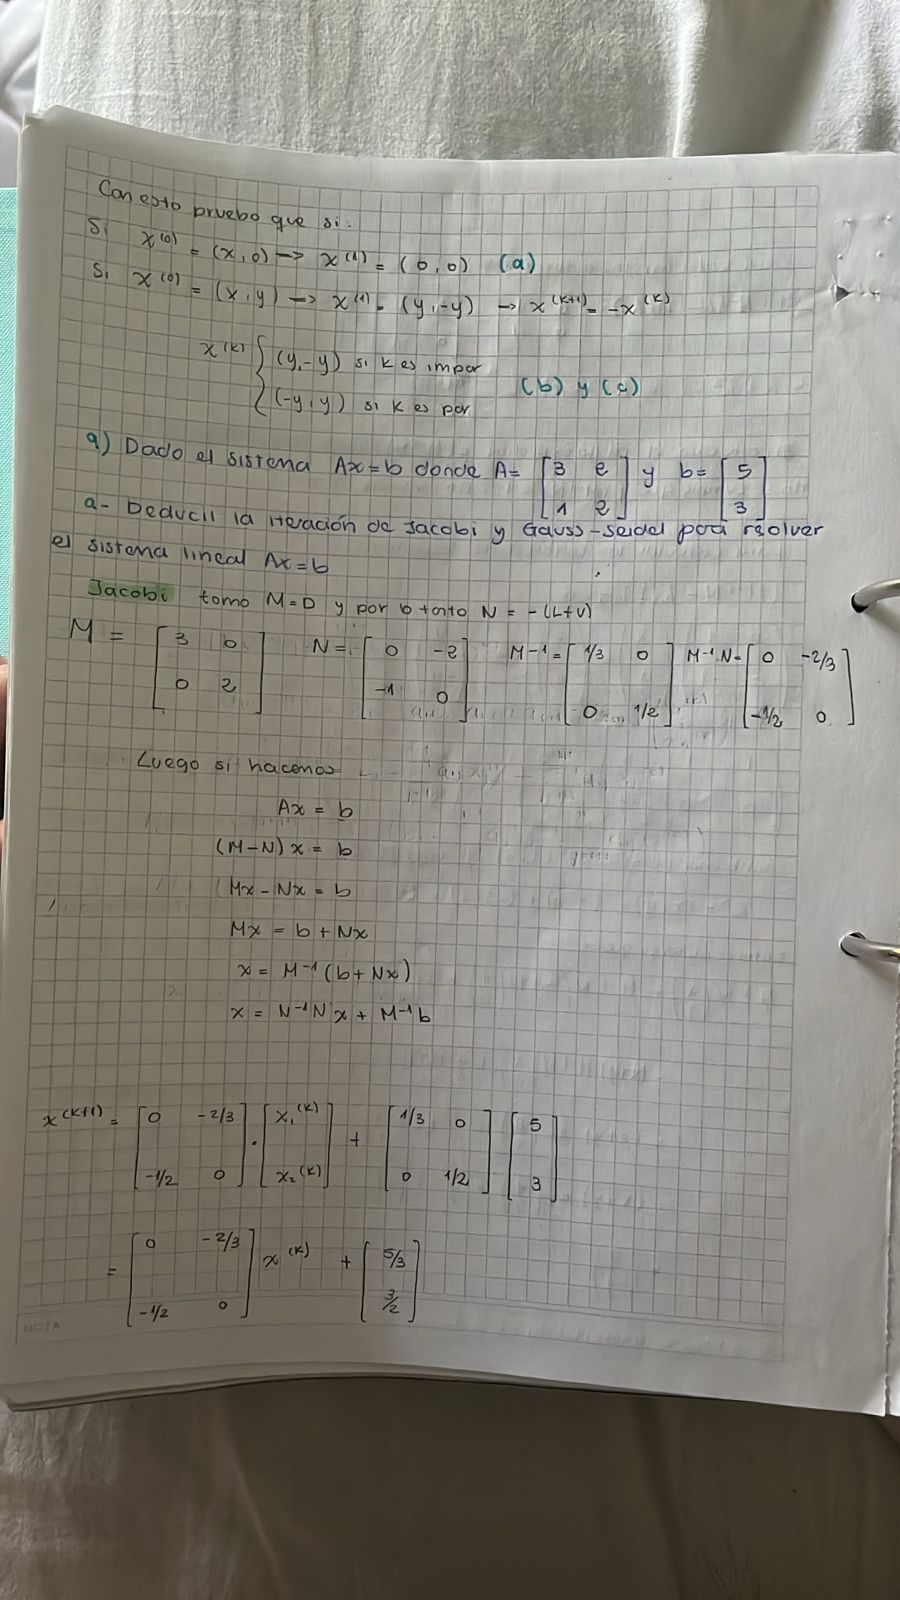 Con esto pruebo que si.
Si x^(0) = (x,0) → x^(1) = (0,0) (a)
Si x^(0) = (x,y) → x^(1) = (y,-y) → x^(k+1) = -x^(k)
x^(k) { (y,-y) si k es impar
(-y,y) si k es par
(b) y (c)
9) Dado el sistema Ax=b donde A= [3 2; 1 2] y b= [5; 3]
a- Deducir la iteración de Jacobi y Gauss-seidel para resolver
el sistema lineal Ax=b
Jacobi tomo M=D y por tanto N = -(L+U)
M = [3 0; 0 2] N= [0 -2; -1 0] M^-1 = [1/3 0; 0 1/2] M^-1.N= [0 -2/3; -1/2 0]
Luego si hacemos
Ax = b
(M-N)x = b
Mx - Nx = b
Mx = b + Nx
x = M^-1 (b+Nx)
x = N^-1 N x + M^-1 b
x^(k+1) = [0 -2/3; -1/2 0] . [x₁^(k); x₂^(k)] + [1/3 0; 0 1/2] [5; 3]
= [0 -2/3; -1/2 0] x^(k) + [5/3; 3/2]
NOTA